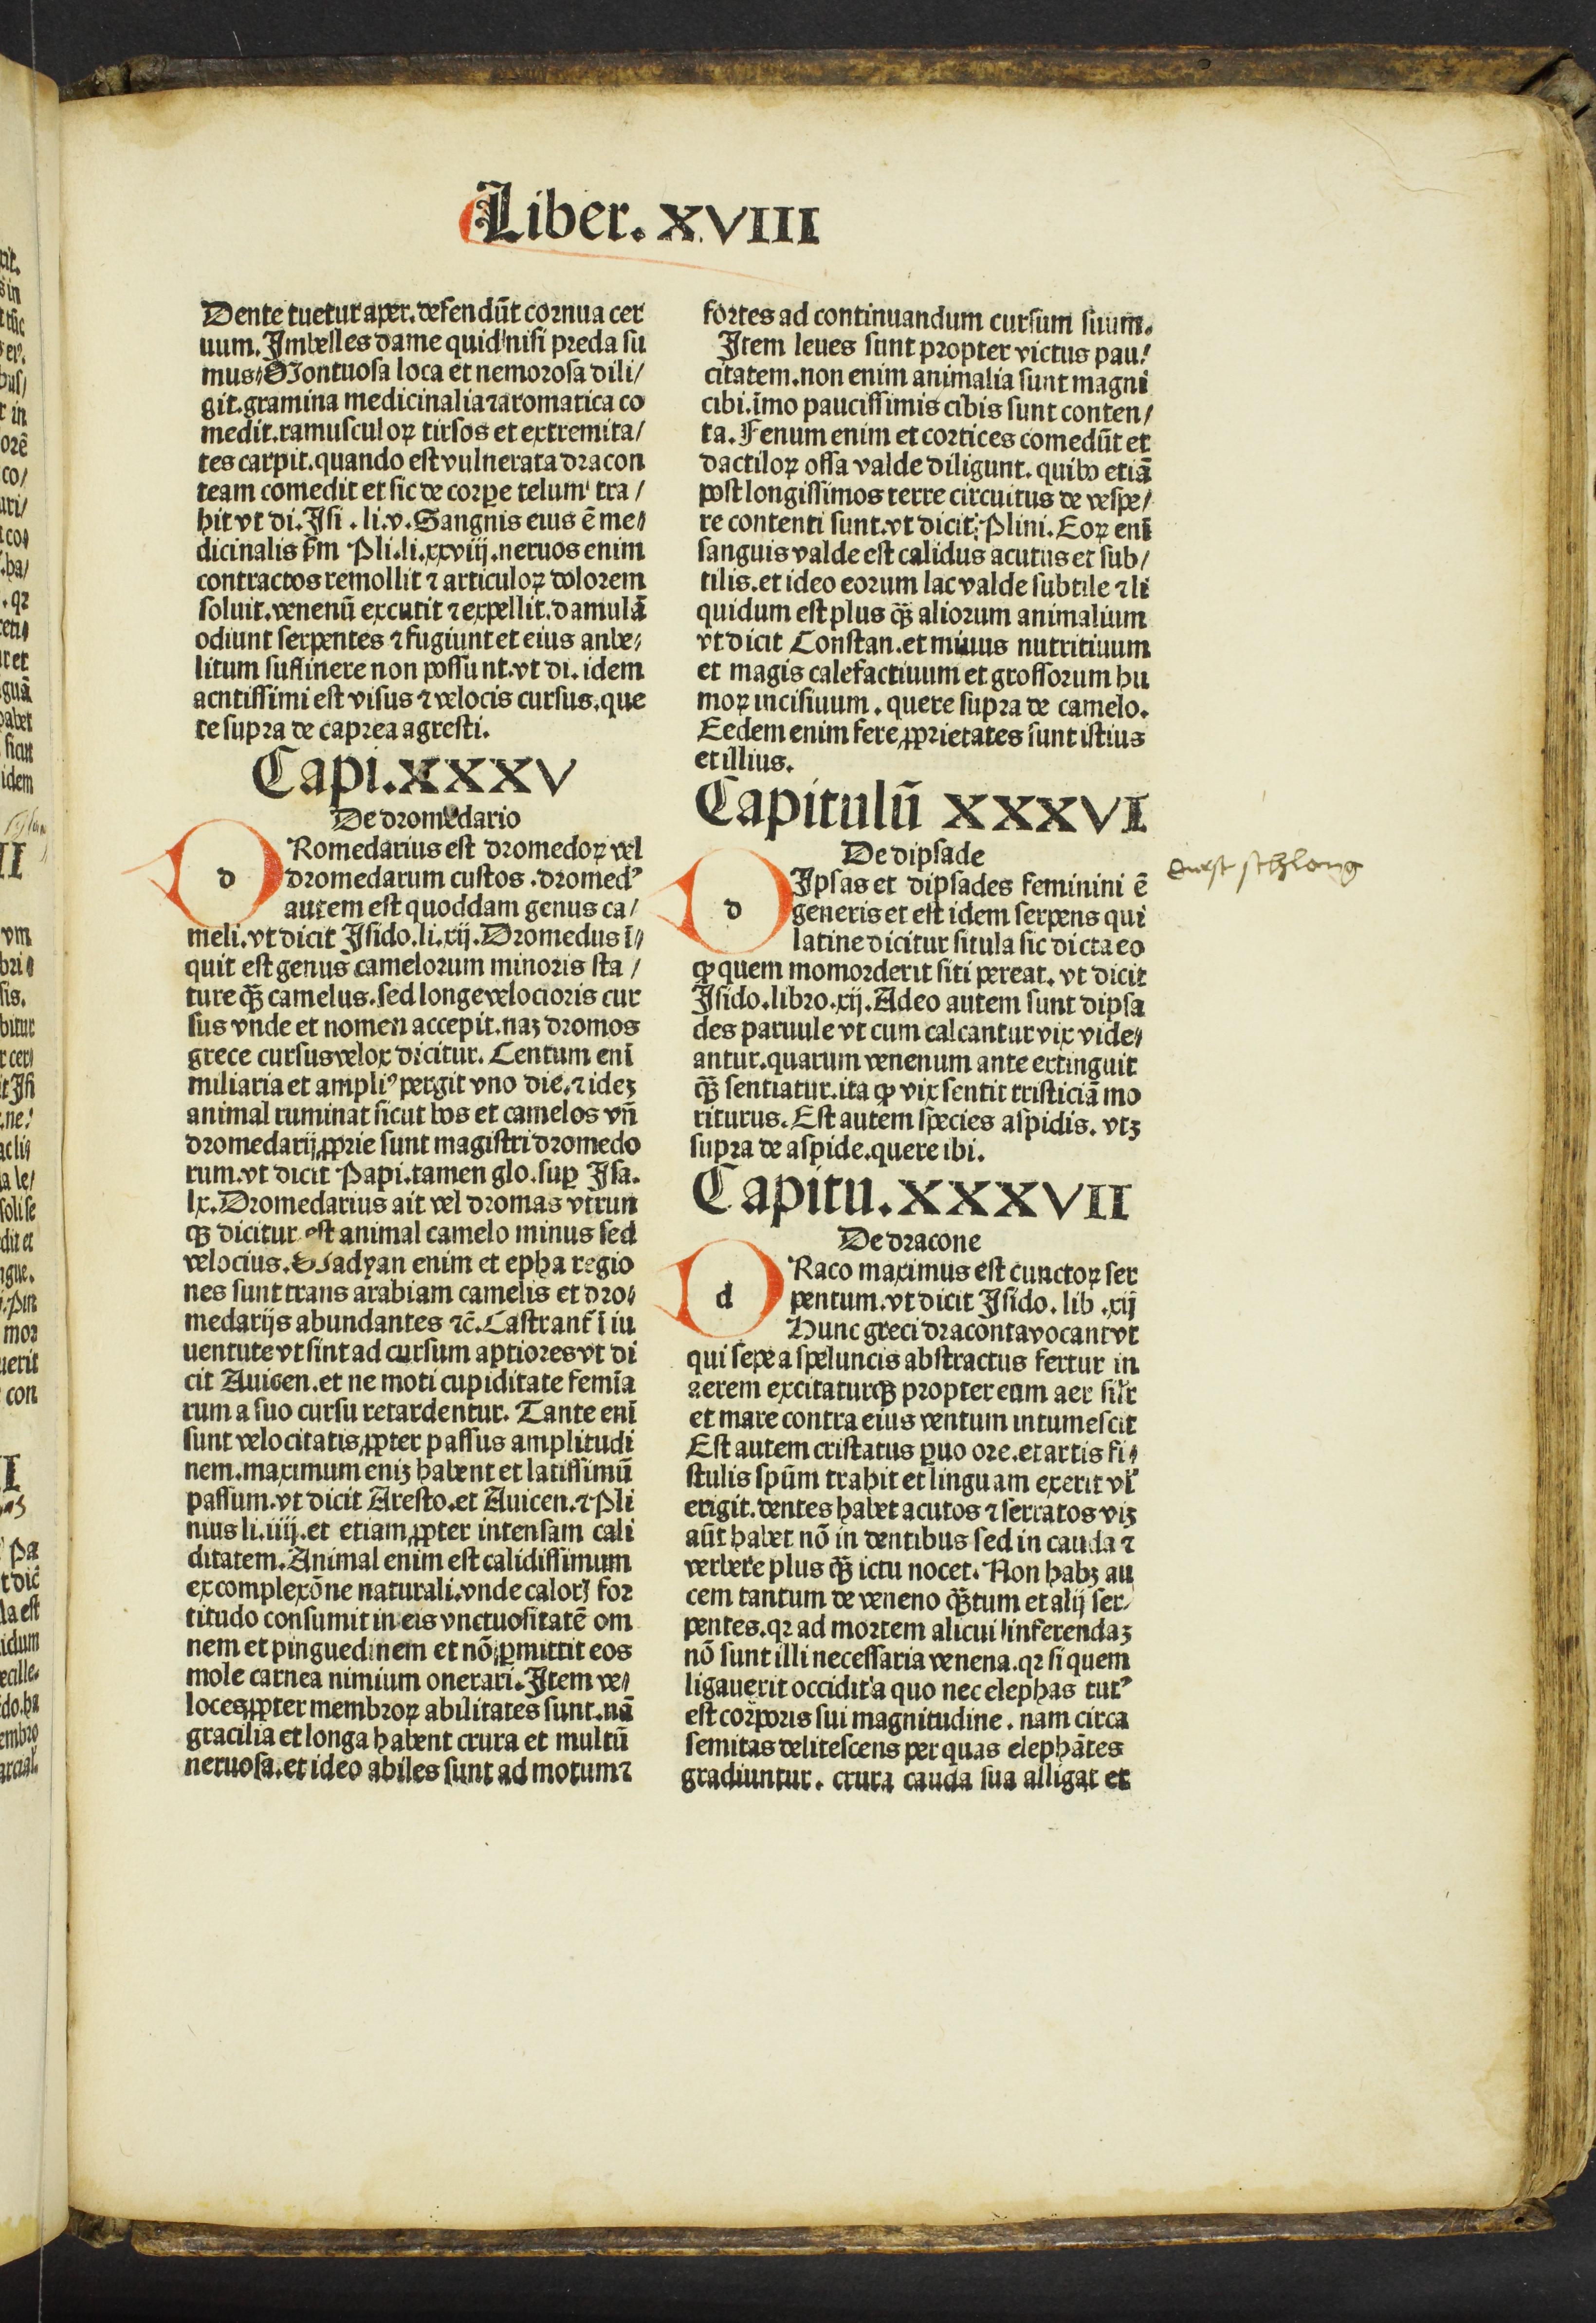 Liber. XVIII
Dente tuetur aper. defendūt cornua cer
uum. Imbelles dame quid nisi preda su
mus. Montuosa loca et nemorosa dili/
git. gramina medicinalia ⁊ aromatica co
medit. ramusculoꝝ tirsos et extremita/
tes carpit. quando est vulnerata dracon
team comedit et sic de corpe telum tra/
hit vt di. Isi. li. v. Sangnis eius ē me/
dicinalis ẜm Pli. li. xxviij. neruos enim
contractos remollit ⁊ articuloꝝ dolorem
soluit. venenū excutit ⁊ expellit. damulā
odiunt serpentes ⁊ fugiunt et eius anhe/
litum sustinere non possunt. vt di. idem
acntissimi est visus ⁊ velocis cursus. que
re supra de caprea agresti.
Capi. XXXV
De dromedario
d Romedarius est dromedoꝝ vel
dromedarum custos. dromedꝰ
autem est quoddam genus ca/
meli. vt dicit Isido. li. xij. Dromedus ī/
quit est genus camelorum minoris sta/
ture qꝫ̄ camelus. sed longe velocioris cur
sus vnde et nomen accepit. naꝫ dromos
grece cursus velox dicitur. Centum enī
miliaria et ampliꝰ pergit vno die. ⁊ ideꝫ
animal ruminat sicut bos et camelos vn̄
dromedarij ꝓprie sunt magistri dromedo
rum. vt dicit Papi. tamen glo. suꝑ Isa.
lx. Dromedarius ait vel dromas vtrun
qꝫ dicitur est animal camelo minus sed
velocius. Madyan enim et epha regio
nes sunt trans arabiam camelis et dro/
medarijs abundantes ⁊c̄. Castrant̄ ī iu
uentute vt sint ad cursum aptiores vt di
cit Auicen. et ne moti cupiditate femīa
rum a suo cursu retardentur. Tante enī
sunt velocitatis ꝓpter passus amplitudi
nem. maximum eniꝫ habent et latissimū
passum. vt dicit Aresto. et Auicen. ⁊ Pli
nius li. iiij. et etiam ꝓpter intensam cali
ditatem. Animal enim est calidissimum
ex complexōne naturali. vnde caloꝝ for
titudo consumit in eis vnctuositatē om
nem et pinguedinem et nō ꝑmittit eos
mole carnea nimium onerari. Item ve/
loces ꝓpter membroꝝ abilitates sunt. nā
gracilia et longa habent crura et multū
neruosa. et ideo abiles sunt ad motum ⁊
fortes ad continuandum cursum suum.
Item leues sunt propter victus pau/
citatem. non enim animalia sunt magni
cibi. īmo paucissimis cibis sunt conten/
ta. Fenum enim et cortices comedūt et
dactiloꝝ ossa valde diligunt. quibꝰ etiā
post longissimos terre circuitus de vespe/
re contenti sunt. vt dicit Plini. Eoꝝ enī
sanguis valde est calidus acutus et sub/
tilis. et ideo eorum lac valde subtile ⁊ li
quidum est plus qꝫ̄ aliorum animalium
vt dicit Constan. et minus nutritiuum
et magis calefactiuum et grossorum hu
moꝝ incisiuum. quere supra de camelo.
Eedem enim fere ꝓprietates sunt istius
et illius.
Capitulū XXXVI
De dipsade
d Ipsas et dipsades feminini ē
generis et est idem serpens qui
latine dicitur situla sic dicta eo
ꝙ quem momorderit siti pereat. vt dicit
Isido. libro. xij. Adeo autem sunt dipsa
des paruule vt cum calcantur vix vide/
antur. quarum venenum ante extinguit
qꝫ̄ sentiatur. ita ꝙ vix sentit tristiciā mo
riturus. Est autem species aspidis. vtꝫ
supra de aspide. quere ibi.
durst schlang
Capitu. XXXVII
De dracone
d Raco maximus est cunctoꝝ ser
pentum. vt dicit Isido. lib. xij
Hunc greci draconta vocant vt
qui sepe a speluncis abstractus fertur in
aerem excitaturqꝫ propter eum aer silr̄
et mare contra eius ventum intumescit
Est autem cristatus ꝑuo ore. et artis fi/
stulis spūm trahit et linguam exerit vl̄
erigit. dentes habet acutos ⁊ serratos viꝫ
aūt habet nō in dentibus sed in cauda ⁊
verbere plus qꝫ̄ ictu nocet. Non habꝫ au
tem tantum de veneno qꝫ̄tum et alij ser
pentes. qꝛ ad mortem alicui inferendaꝫ
nō sunt illi necessaria venena. qꝛ si quem
ligauerit occidit. a quo nec elephas tutꝰ
est corporis sui magnitudine. nam circa
semitas delitescens per quas elephātes
gradiuntur. crura cauda sua alligat et